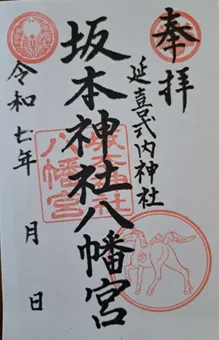 奉拝
延喜式内神社
坂本神社八幡宮
令和七年 月 日
坂本神社
八幡宮